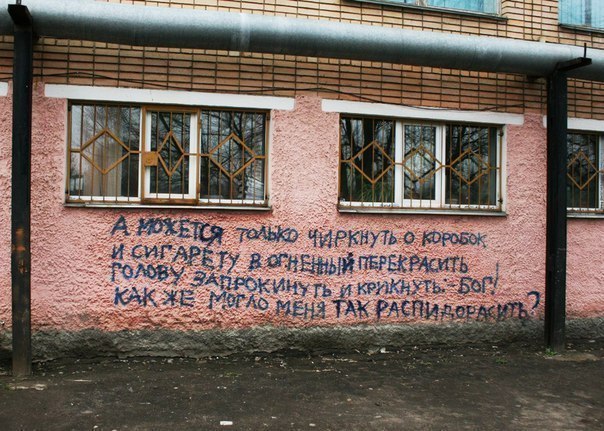 А МОЖЕТСЯ ТОЛЬКО ЧИРКНУТЬ О КОРОБОК
И СИГАРЕТУ В ОГНЕННЫЙ ПЕРЕКРАСИТЬ
ГОЛОВУ ЗАПРОКИНУТЬ И КРИКНУТЬ:-БОГ!
КАК ЖЕ МОГЛО МЕНЯ ТАК РАСПИДОРАСИТЬ?